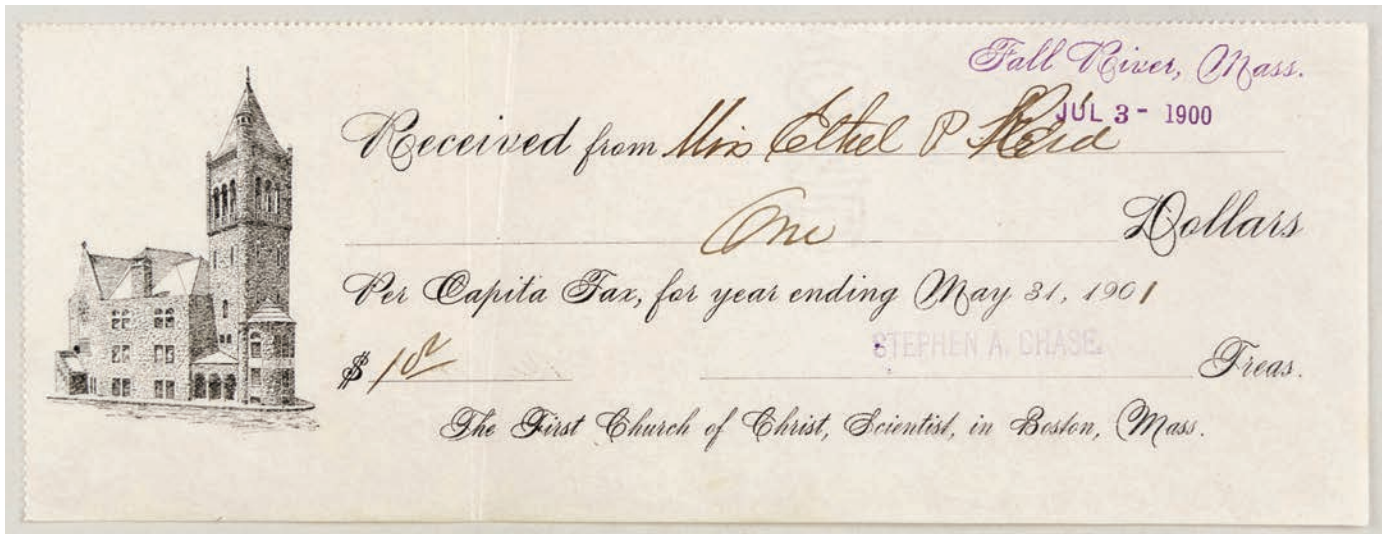 Fall River, Mass.
JUL 3 - 1900
Received from Miss Ethel P
One Dollars
Per Capita Tax, for year ending May 31, 1901
STEPHEN A. CHASE,
$ 1 00 Treas.
The First Church of Christ, Scientist, in Boston, Mass.